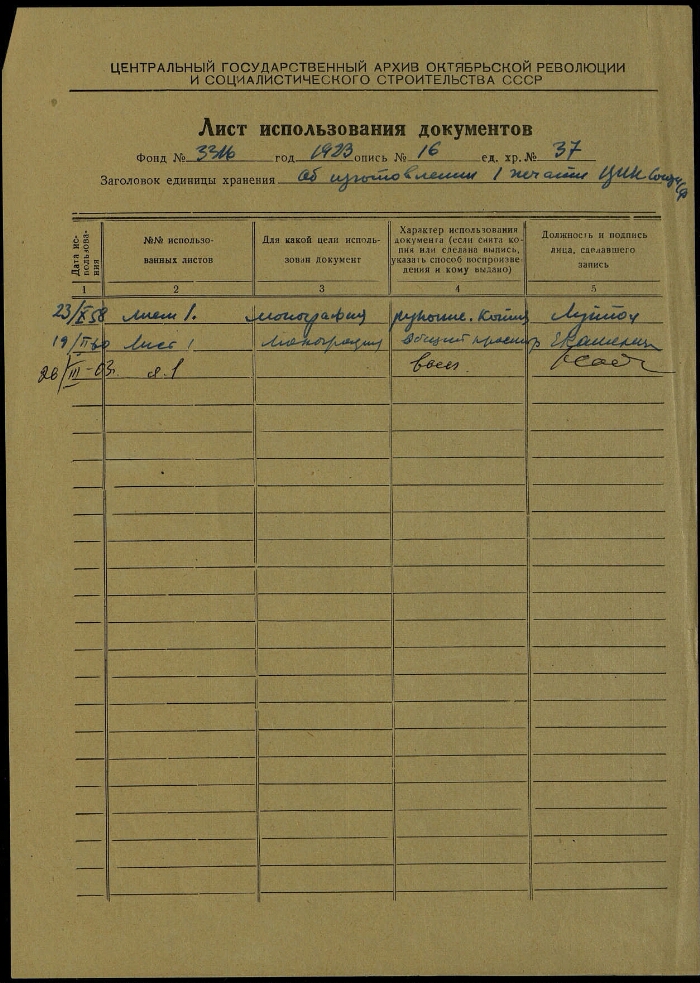 ЦЕНТРАЛЬНЫЙ ГОСУДАРСТВЕННЫЙ АРХИВ ОКТЯБРЬСКОЙ РЕВОЛЮЦИИ
И СОЦИАЛИСТИЧЕСКОГО СТРОИТЕЛЬСТВА СССР
Лист использования документов
Фонд № 3316 год 1923 опись № 16 ед. хр. № 37
Заголовок единицы хранения Об изготовлении 1 печати ЦИК Союза
Дата ис-
пользова-
ния
№№ использо-
ванных листов
Для какой цели исполь-
зован документ
Характер использования
документа (если снята ко-
пия или сделана выпись,
указать способ воспроизве-
дения и кому выдано)
Должность и подпись
лица, сделавшего
запись
1 2 3 4 5
23/X 58 лист 1. монография рукопис. Копия
19/II 60 Лист 1 Монография Общий просмотр
26/III-63. л. 1